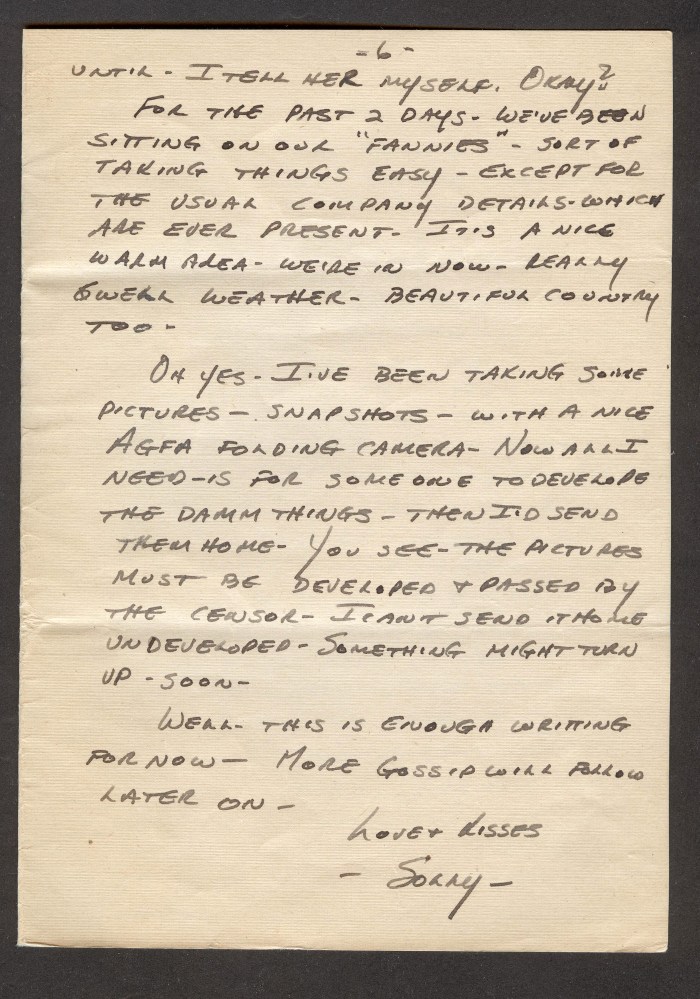 -6-
UNTIL - I TELL HER MYSELF. OKAY?
FOR THE PAST 2 DAYS - WE'VE BEEN
SITTING ON OUR "FANNIES" - SORT OF
TAKING THINGS EASY - EXCEPT FOR
THE USUAL COMPANY DETAILS - WHICH
ARE EVER PRESENT - IT'S A NICE
WARM AREA - WE'RE IN NOW - REALLY
SWELL WEATHER - BEAUTIFUL COUNTRY
TOO -
OH YES - I'VE BEEN TAKING SOME
PICTURES - SNAPSHOTS - WITH A NICE
AGFA FOLDING CAMERA - NOW ALL I
NEED - IS FOR SOMEONE TO DEVELOPE
THE DAMM THINGS - THEN I'D SEND
THEM HOME - YOU SEE - THE PICTURES
MUST BE DEVELOPED & PASSED BY
THE CENSOR - I CAN'T SEND IT HOME
UNDEVELOPED - SOMETHING MIGHT TURN
UP - SOON -
WELL - THIS IS ENOUGH WRITTING
FOR NOW - MORE GOSSIP WILL FOLLOW
LATER ON -
LOVE & KISSES
- SOLLY -